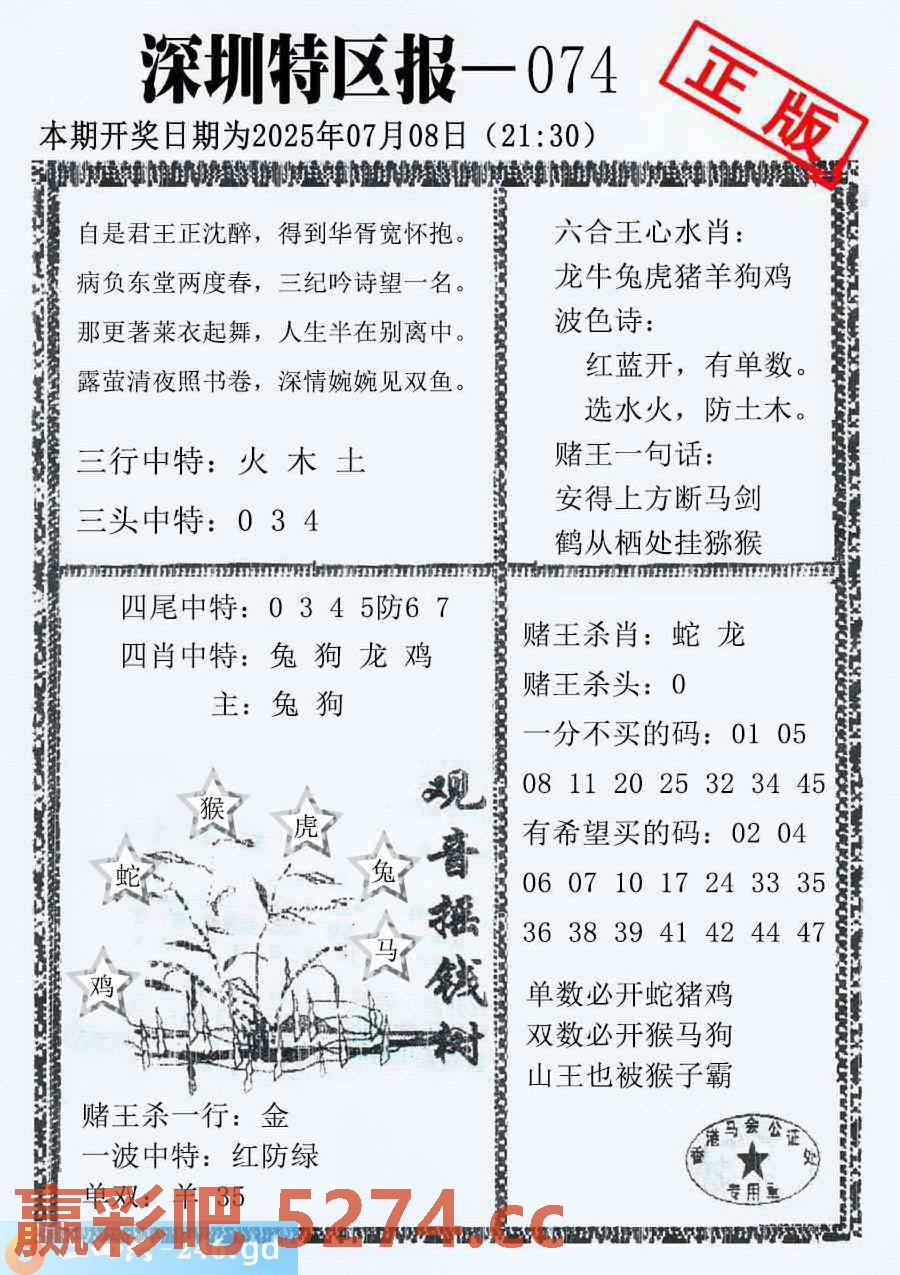 深圳特区报—074
正版
本期开奖日期为2025年07月08日（21:30）
自是君王正沈醉，得到华胥宽怀抱。
病负东堂两度春，三纪吟诗望一名。
那更著莱衣起舞，人生半在别离中。
露萤清夜照书卷，深情婉婉见双鱼。
三行中特：火 木 土
三头中特：0 3 4
六合王心水肖：
龙牛兔虎猪羊狗鸡
波色诗：
红蓝开，有单数。
选水火，防土木。
赌王一句话：
安得上方断马剑
鹤从栖处挂猕猴
四尾中特：0 3 4 5防6 7
四肖中特：兔 狗 龙 鸡
主：兔 狗
猴
虎
蛇
兔
马
鸡
观音摇钱树
赌王杀一行：金
一波中特：红防绿
单双：羊 35
赌王杀肖：蛇 龙
赌王杀头：0
一分不买的码：01 05
08 11 20 25 32 34 45
有希望买的码：02 04
06 07 10 17 24 33 35
36 38 39 41 42 44 47
单数必开蛇猪鸡
双数必开猴马狗
山王也被猴子霸
香港马会公证处
专用章
赢彩吧 5274.cc